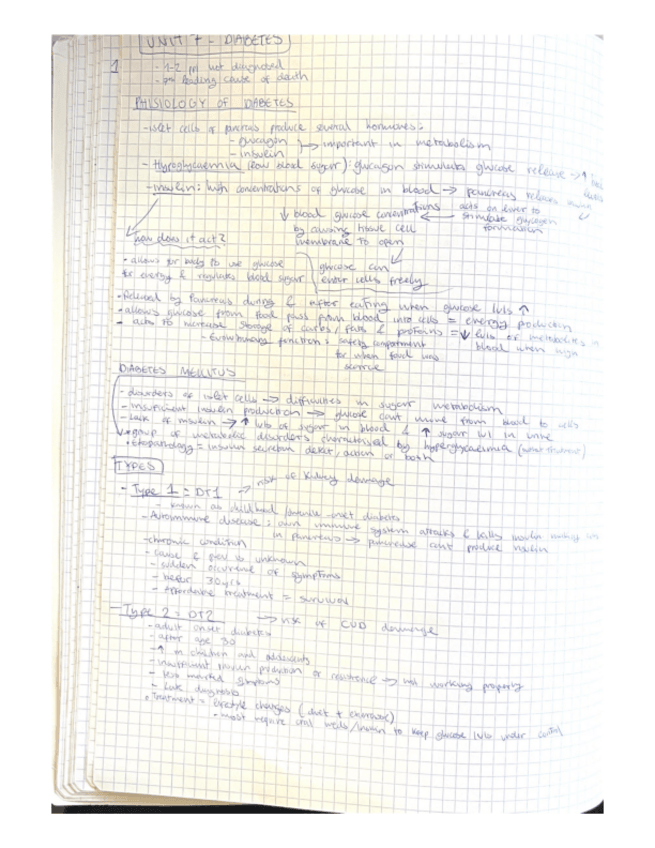 UNIT 7 - DIABETES
1
- 1-2 not diagnosed
- 7th leading cause of death
PHISIOLOGY OF DIABETES
- islet cells of pancreas produce several hormones:
- glucagon
- insulin
→ important in metabolism
- Hypoglycaemia (low blood sugar): glucagon stimulates glucose release → ↑
- insulin: high concentrations of glucose in blood → pancreas releases insulin
acts on liver to
stimulate glycogen
formation
↓ blood glucose concentrations
by causing tissue cell
membrane to open
glucose can
enter cells freely
how does it act?
• allows for body to use glucose
for energy & regulates blood sugar
- Released by Pancreas during & after eating when glucose lvls ↑
- allows glucose from food pass from blood into cells = energy production
- acts to increase storage of carbs / fats & proteins = ↓ lvls of metabolites in
blood when high
- Evolutionary function: safety
for when food was
scarce
DIABETES MELLITUS
- disorders of islet cells → difficulties in sugar metabolism
- insufficient insulin production → glucose can't move from blood to cells
- Lack of insulin → ↑ lvls of sugar in blood & ↑ sugar lvl in urine
• group of metabolic disorders characterised by hyperglycaemia
• = insulin secretion defect, action or both
TYPES
- Type 1 = DT1 → risk of kidney damage
- known as childhood / -onset diabetes
- Autoimmune disease: own immune system attacks & kills insulin
in pancreas → pancreas can't produce insulin
- chronic condition
- cause & is unknown
- sudden occurence of symptoms
- before 30yrs
- affordable treatment = survival
- Type 2 = DT2 → risk of CVD damage
- adult onset diabetes
- after age 30
- ↑ in children and adolescents
- insufficient insulin production or resistance → not working properly
- less marked symptoms
- Late diagnosis
• Treatment = Lifestyle changes (diet + exercise)
• most require oral meds/insulin to keep glucose lvls under control